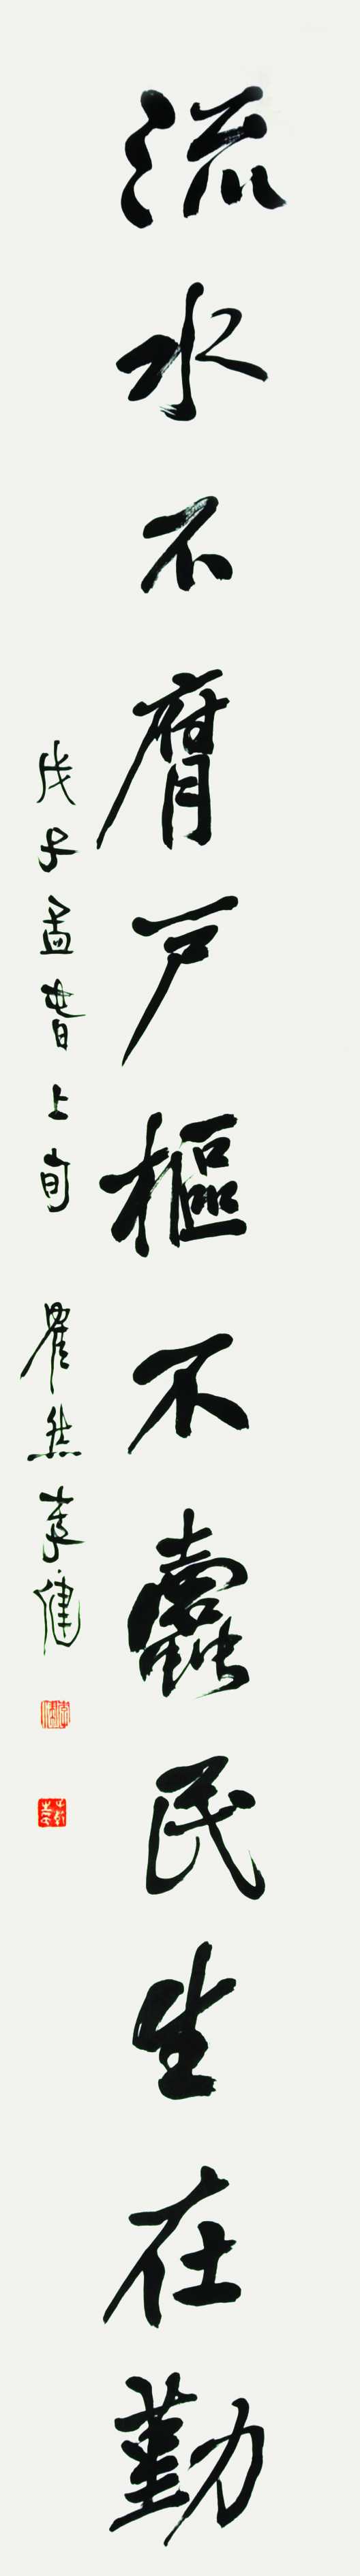 流水不腐户樞不蠹民生在勤
戊子孟春上旬 瞿然李健